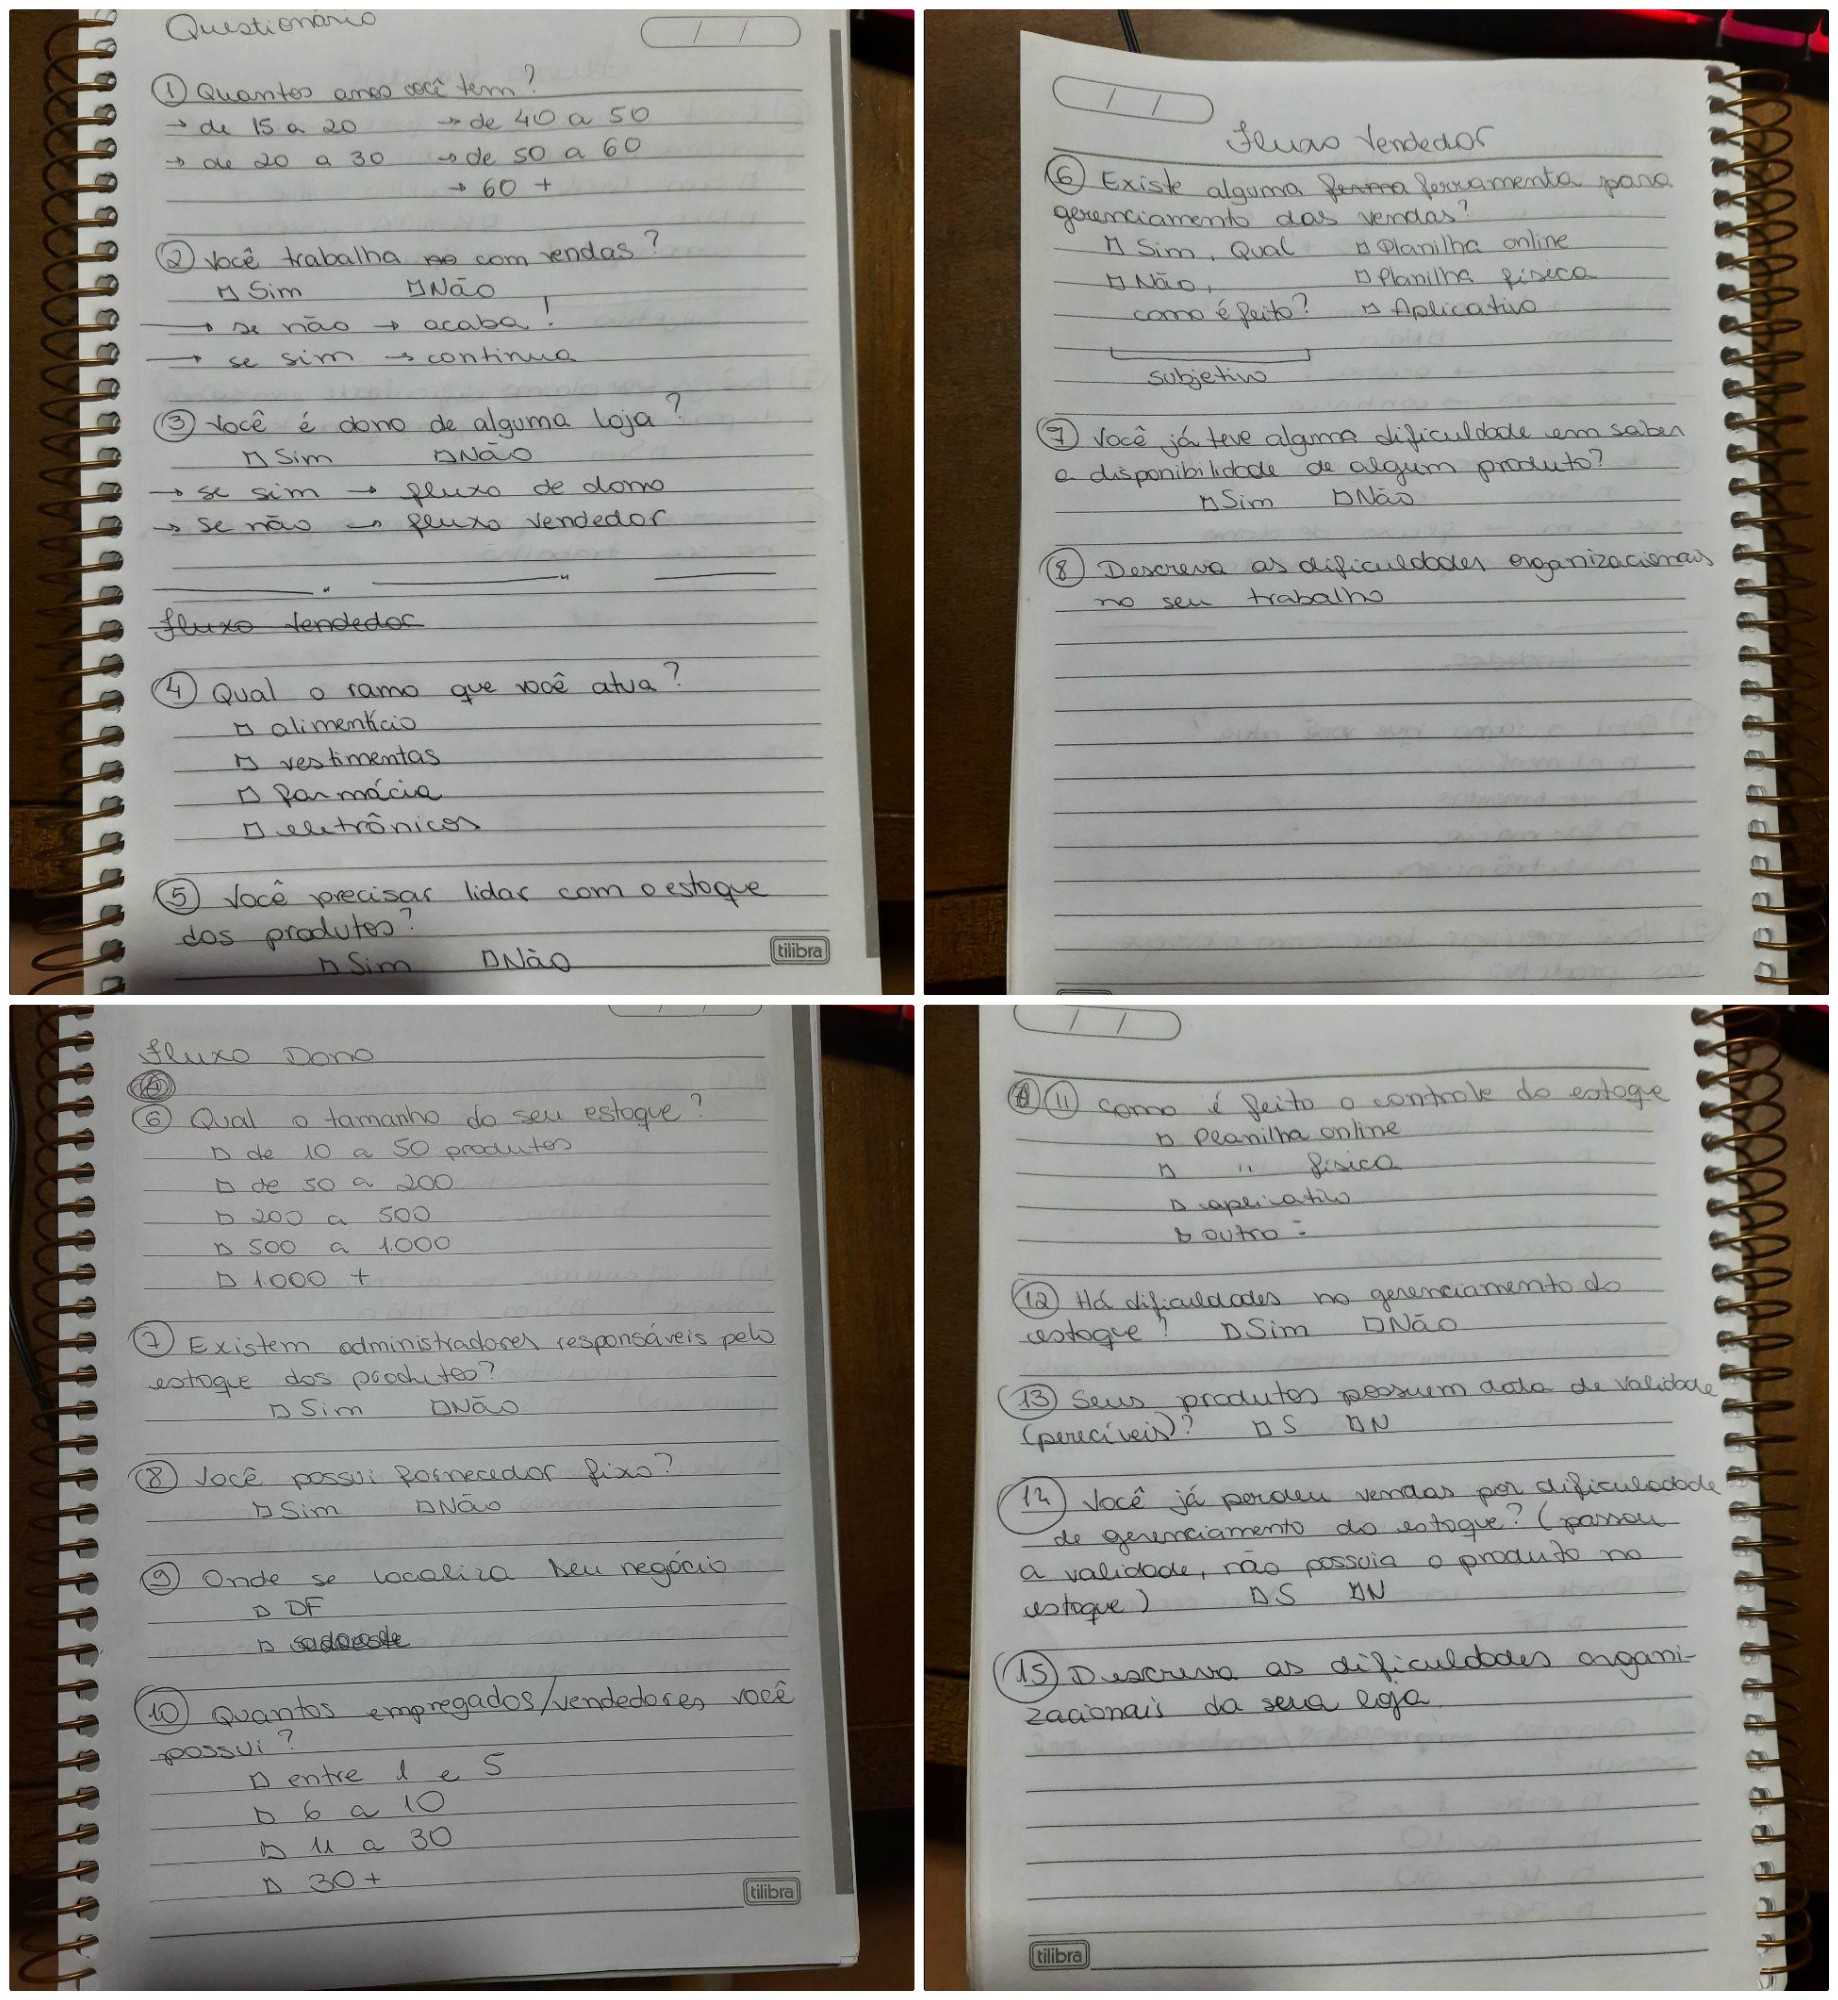 Questionário
/ /
① Quantos anos você tem?
→ de 15 a 20 → de 40 a 50
→ de 20 a 30 → de 50 a 60
→ 60 +
② Você trabalha no com vendas?
□ Sim □ Não
→ se não → acaba!
→ se sim → continua
③ Você é dono de alguma loja?
□ Sim □ Não
→ se sim → fluxo de dono
→ se não → fluxo vendedor
Fluxo Vendedor
④ Qual o ramo que você atua?
□ alimentício
□ vestimentas
□ farmácia
□ eletrônicos
⑤ Você precisar lidar com o estoque
dos produtos?
□ Sim □ Não
tilibra
/ /
Fluxo Vendedor
⑥ Existe alguma forma ferramenta para
gerenciamento das vendas?
□ Sim, Qual □ Planilha online
□ Não, □ Planilha física
como é feito? □ Aplicativo
subjetivo
⑦ Você já teve alguma dificuldade em saber
a disponibilidade de algum produto?
□ Sim □ Não
⑧ Descreva as dificuldades organizacionais
no seu trabalho
Fluxo Dono
⑥ Qual o tamanho do seu estoque?
□ de 10 a 50 produtos
□ de 50 a 200
□ 200 a 500
□ 500 a 1.000
□ 1.000 +
⑦ Existem administradores responsáveis pelo
estoque dos produtos?
□ Sim □ Não
⑧ Você possui fornecedor fixo?
□ Sim □ Não
⑨ Onde se localiza seu negócio
□ DF
□
⑩ Quantos empregados/vendedores você
possui?
□ entre 1 e 5
□ 6 a 10
□ 11 a 30
□ 30+
tilibra
/ /
⑪ Como é feito o controle do estoque
□ Planilha online
□ " física
□ aplicativo
□ outro:
⑫ Há dificuldades no gerenciamento do
estoque? □ Sim □ Não
⑬ Seus produtos possuem data de validade
(perecíveis)? □ S □ N
⑭ Você já perdeu vendas por dificuldade
de gerenciamento do estoque? (passou
a validade, não possuia o produto no
estoque) □ S □ N
⑮ Descreva as dificuldades organi-
zacionais da sua loja.
tilibra